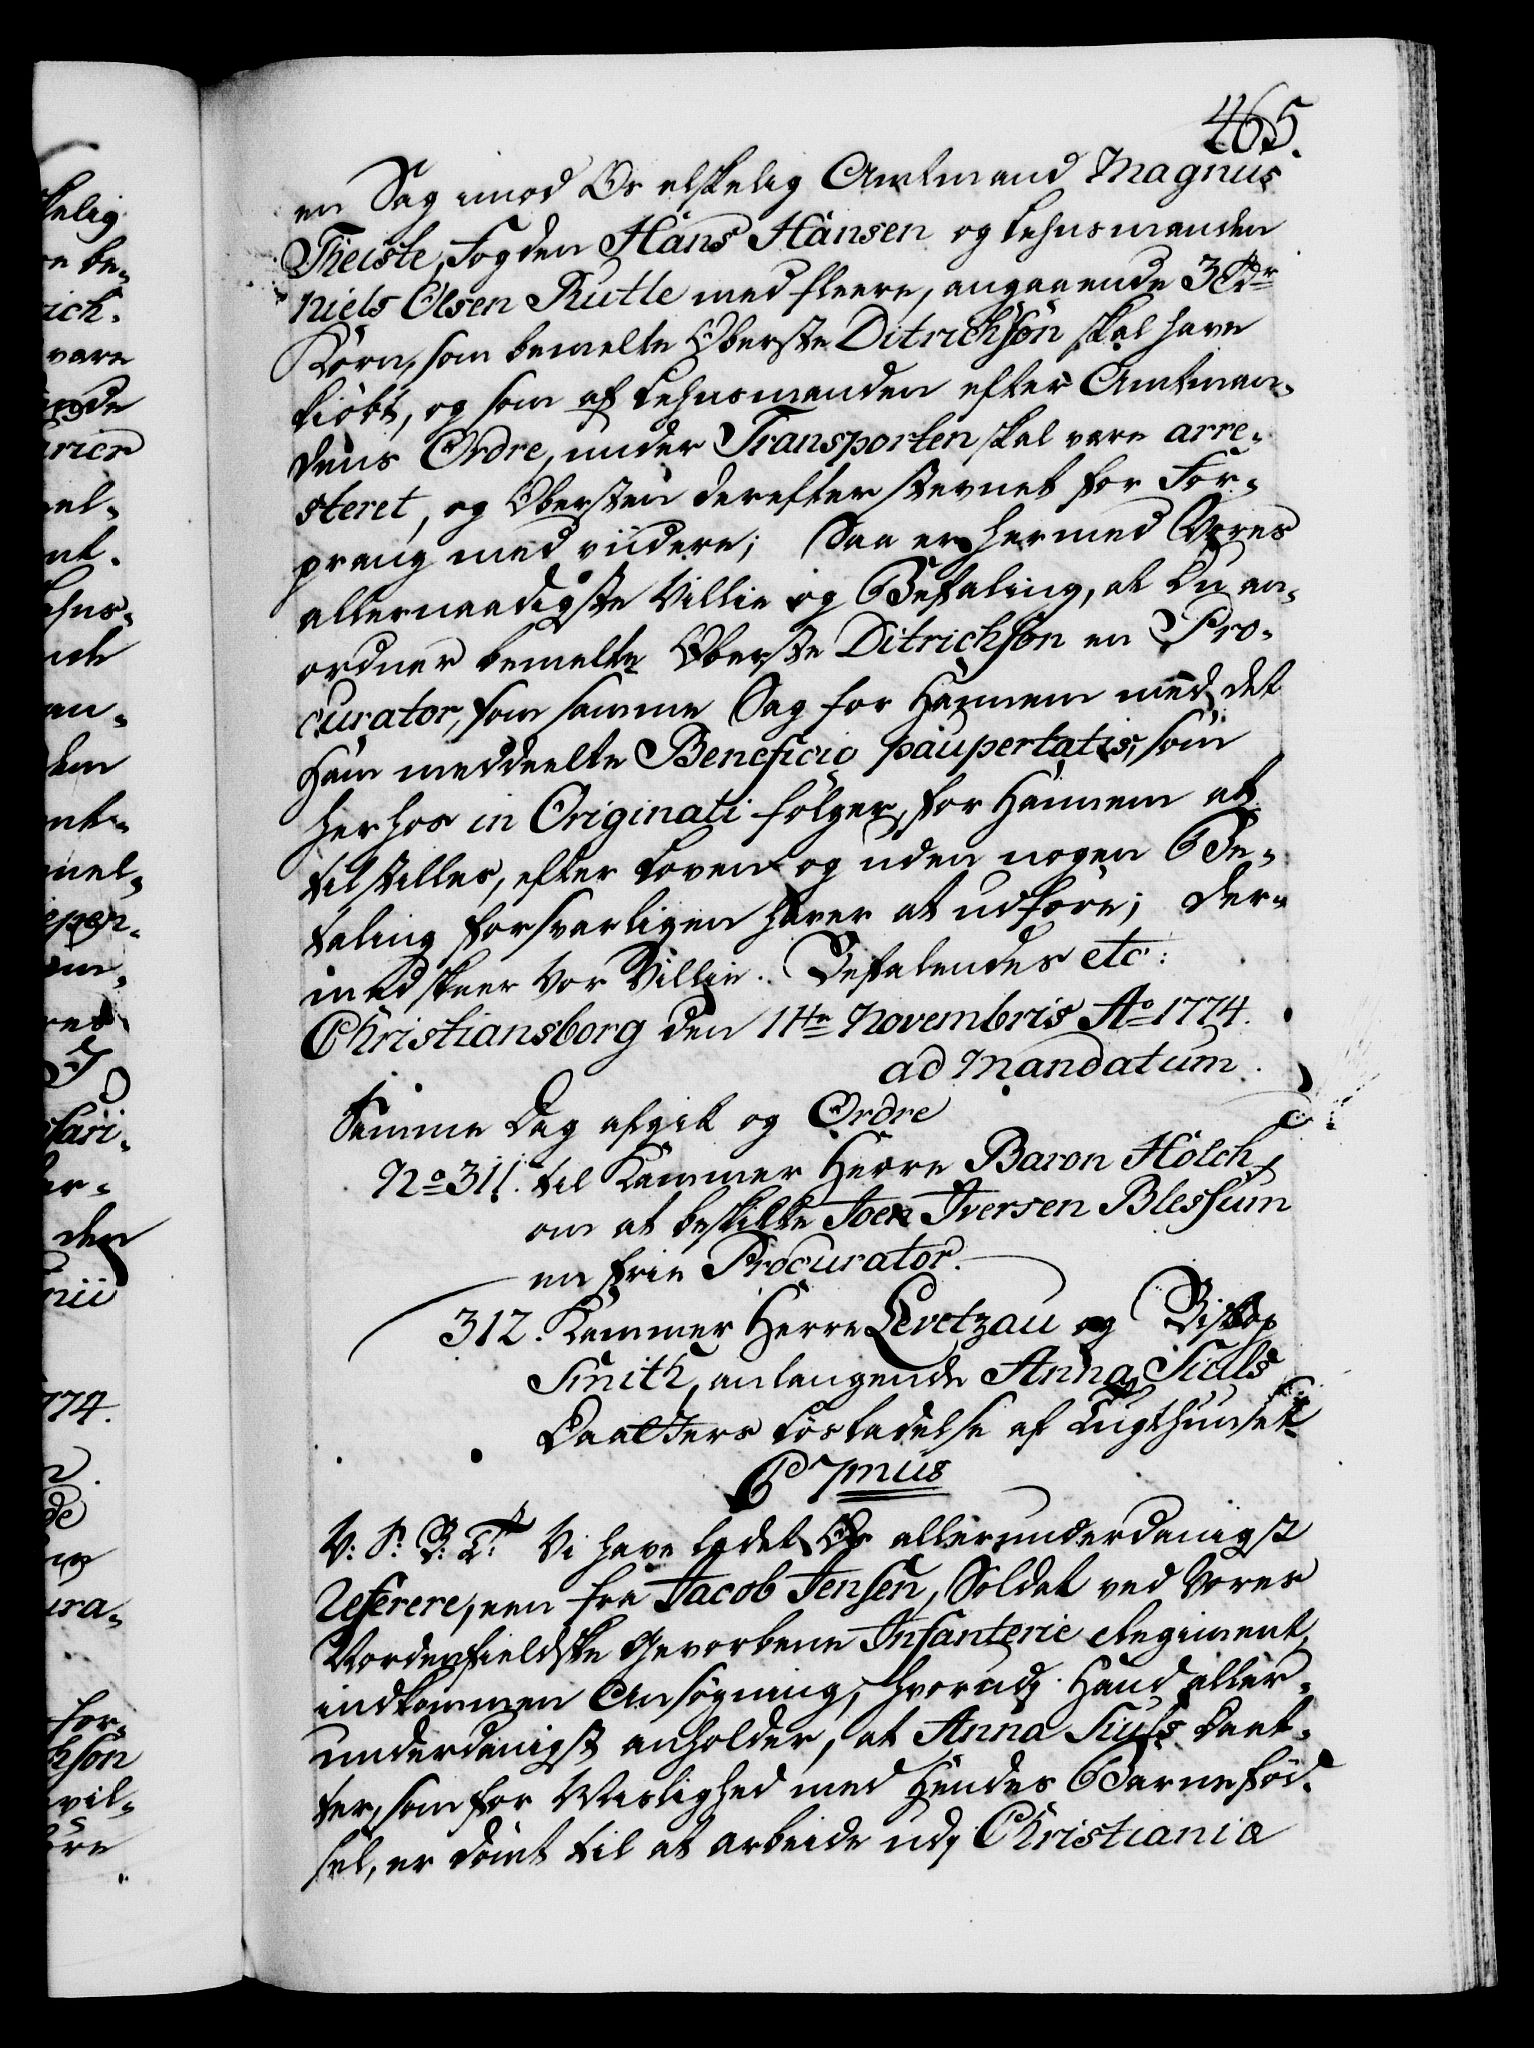 465.
en Sag imod Os elskelig Amtmand Magnus
Theiste, Fogden Hans Hansen og Lehnsmanden
Niels Olsen Rutle med fleere, angaaende 3 Tdr
Korn, som bemelte Oberste Ditrichson skal have
kiöbt, og som af Lehnsmanden efter Amtman-
dens Ordre, under Transporten skal være arre-
steret, og Obersten derefter stevnet for For-
prang med viidere; Saa er hermed Vores
allernaadigste Villie og Befaling, at Du an-
ordner bemelte Oberste Ditrichson en Pro-
curator, som samme Sag for Hannem med det
Ham meddeelte Beneficio paupertatis, som
herhos in Originali fölger, for Hannem at
tilstilles, efter Loven og uden nogen Be-
taling forsvarligen haver at udföre; Der-
med skeer Vor Villie. Befalendes etc:
Christiansborg den 11te Novembris Ao 1774.
ad Mandatum.
Samme Dag afgik og Ordre
No 311. til Kammer Herre Baron Hölch
om at beskikke Joen Iversen Blessum
en frie Procurator.
312. Kammer Herre Levetzau og Biskop
Smith, anlangende Anna Siuls
Daatters Lösladelse af Tugthuuset
C 7mus
V: S: B: T: Vi have ladet Os allerunderdanigst
Referere, een fra Jacob Jensen, Soldat ved Vores
Nordenfieldske Gevorbene Infanterie Regiment,
indkommen Ansögning, hvorudj Hand aller-
underdanigst anholder, at Anna Siuls Daat-
ter, som for Uvislighed med Hendes Barnefød-
sel, er dömt til at arbeide udj Christiania